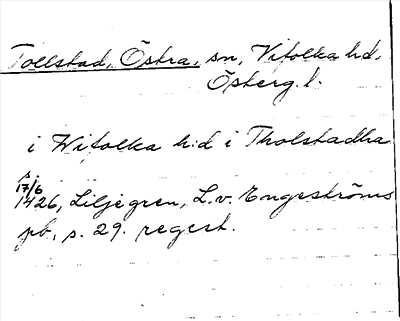 Tollstad, Östra, sn, Vifolka hd.
Österg. l.
i Wifolka h:d i Tholstadha
17/6
1426, Liljegren, L. v. Engeströms
pb, s. 29. regest.